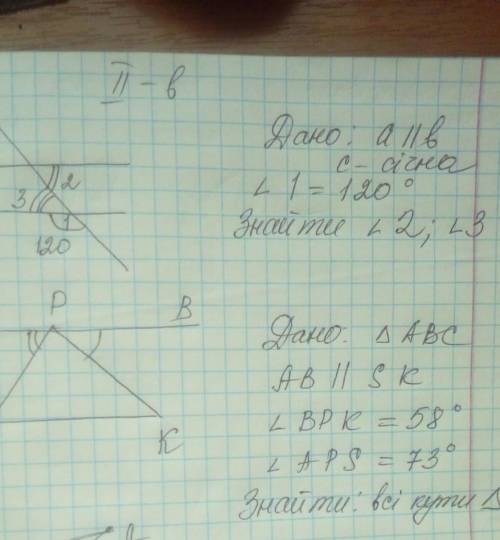 II - в
Дано: a || b
c - січна
∠ 1 = 120°
Знайти ∠2; ∠3
2
3
1
120
P
B
K
Дано: △ ABC
AB || SK
∠ BPK = 58°
∠ APS = 73°
Знайти: всі кути △